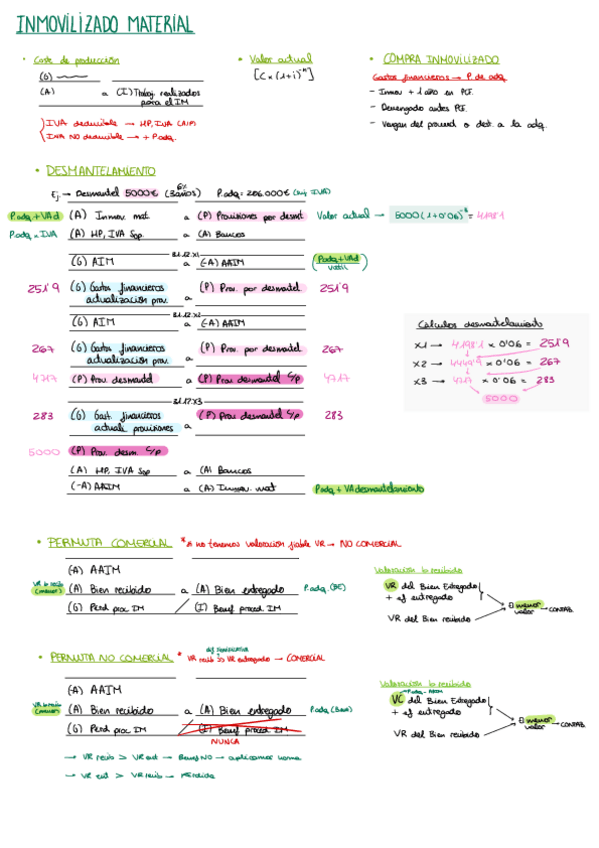 INMOVILIZADO MATERIAL
• Coste de producción
(G)
(A) a (I) Trabaj. realizados
para el IM
IVA deducible → HP, IVA (A/P)
IVA NO deducible → + P.adq.
• Valor actual
[C × (1+i)⁻ⁿ]
• COMPRA INMOVILIZADO
Gastos financieros → P. de adq
- Inmov + 1 año en PCF.
- Devengado antes PCF.
- Vengan del proveed o dest. a la adq.
• DESMANTELAMIENTO
Ej → Desmantel 5000€ (3años) 6% P.adq = 206.000€ (sin IVA)
P.adq + VAd (A) Inmov. mat. a (P) Provisiones por desmt Valor actual → 5000(1+0'06)⁻³ = 4198'1
P.adq × IVA (A) HP, IVA Sop. a (A) Bancos
31.12.X1
(G) AIM a (-A) AAIM (P.adq+VAd / vútil)
251'9 (G) Gastos financieros a (P) Prov. por desmantel 251'9
actualización prov.
31.12.X2
(G) AIM a (-A) AAIM
267 (G) Gastos financieros a (P) Prov. por desmantel 267
actualización prov.
4717 (P) Prov. desmantel a (P) Prov desmantel c/p 4717
31.12.X3
283 (G) Gast. financieros a (P) Prov desmantel c/p 283
actuali. provisiones
5000 (P) Prov. desm. c/p
(A) HP, IVA Sop a (A) Bancos
(-A) AAIM a (A) Inmov. mat P.adq + VA desmantelamiento
Cálculos desmantelamiento
X1 → 4198'1 × 0'06 = 251'9
X2 → 4449'9 × 0'06 = 267
X3 → 4717 × 0'06 = 283
5000
• PERMUTA COMERCIAL * si no tenemos valoración fiable VR → NO COMERCIAL
(-A) AAIM
VR b recib (menor) (A) Bien recibido a (A) Bien entregado P.adq. (BE)
(G) Perd proc IM (I) Benef proced. IM
Valoración lo recibido
VR del Bien Entregado
+ ef entregado
VR del Bien recibido
El menor valor → CONTAB.
• PERMUTA NO COMERCIAL * VR recib >> VR entregado → COMERCIAL
(-A) AAIM
(A) Bien recibido a (A) Bien entregado P.adq (Bent)
(G) Perd proc IM (I) Benef proced IM
NUNCA
→ VR recib > VR ent → Benef NO → aplicamos norma
→ VR ent > VR recib → Pérdida
Valoración lo recibido
P.adq - AAIM
VC del Bien Entregado
+ ef entregado
VR del Bien recibido
El menor valor → CONTAB.